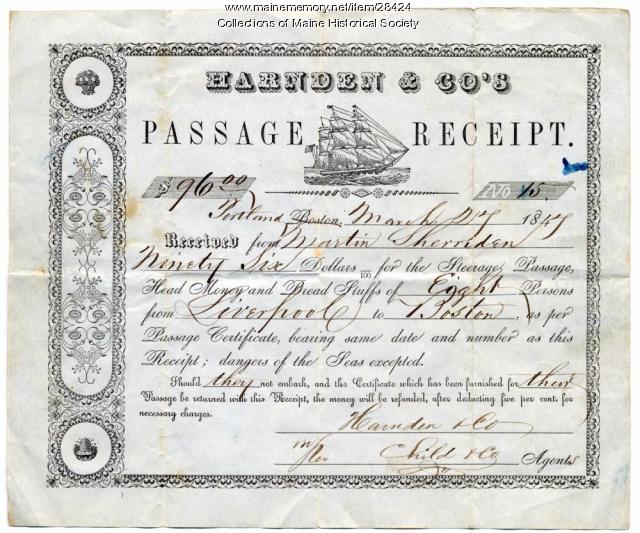 www.mainememory.net/item/28424
Collections of Maine Historical Society
HARNDEN & CO'S
PASSAGE RECEIPT.
$ 96.00 No 15.
Portland Boston, March 27 1847
Received from Martin Sherriden
Ninety Six Dollars 100 for the Steerage Passage,
Head Money and Bread Stuffs of Eight Persons
from Liverpool to Boston, as per
Passage Certificate, bearing same date and number as this
Receipt; dangers of the Seas excepted.
Should they not embark, and the Certificate which has been furnished for their
Passage be returned with this Receipt, the money will be refunded, after deducting five per cent. for
necessary charges.
Harnden & Co
Child & Co Agents